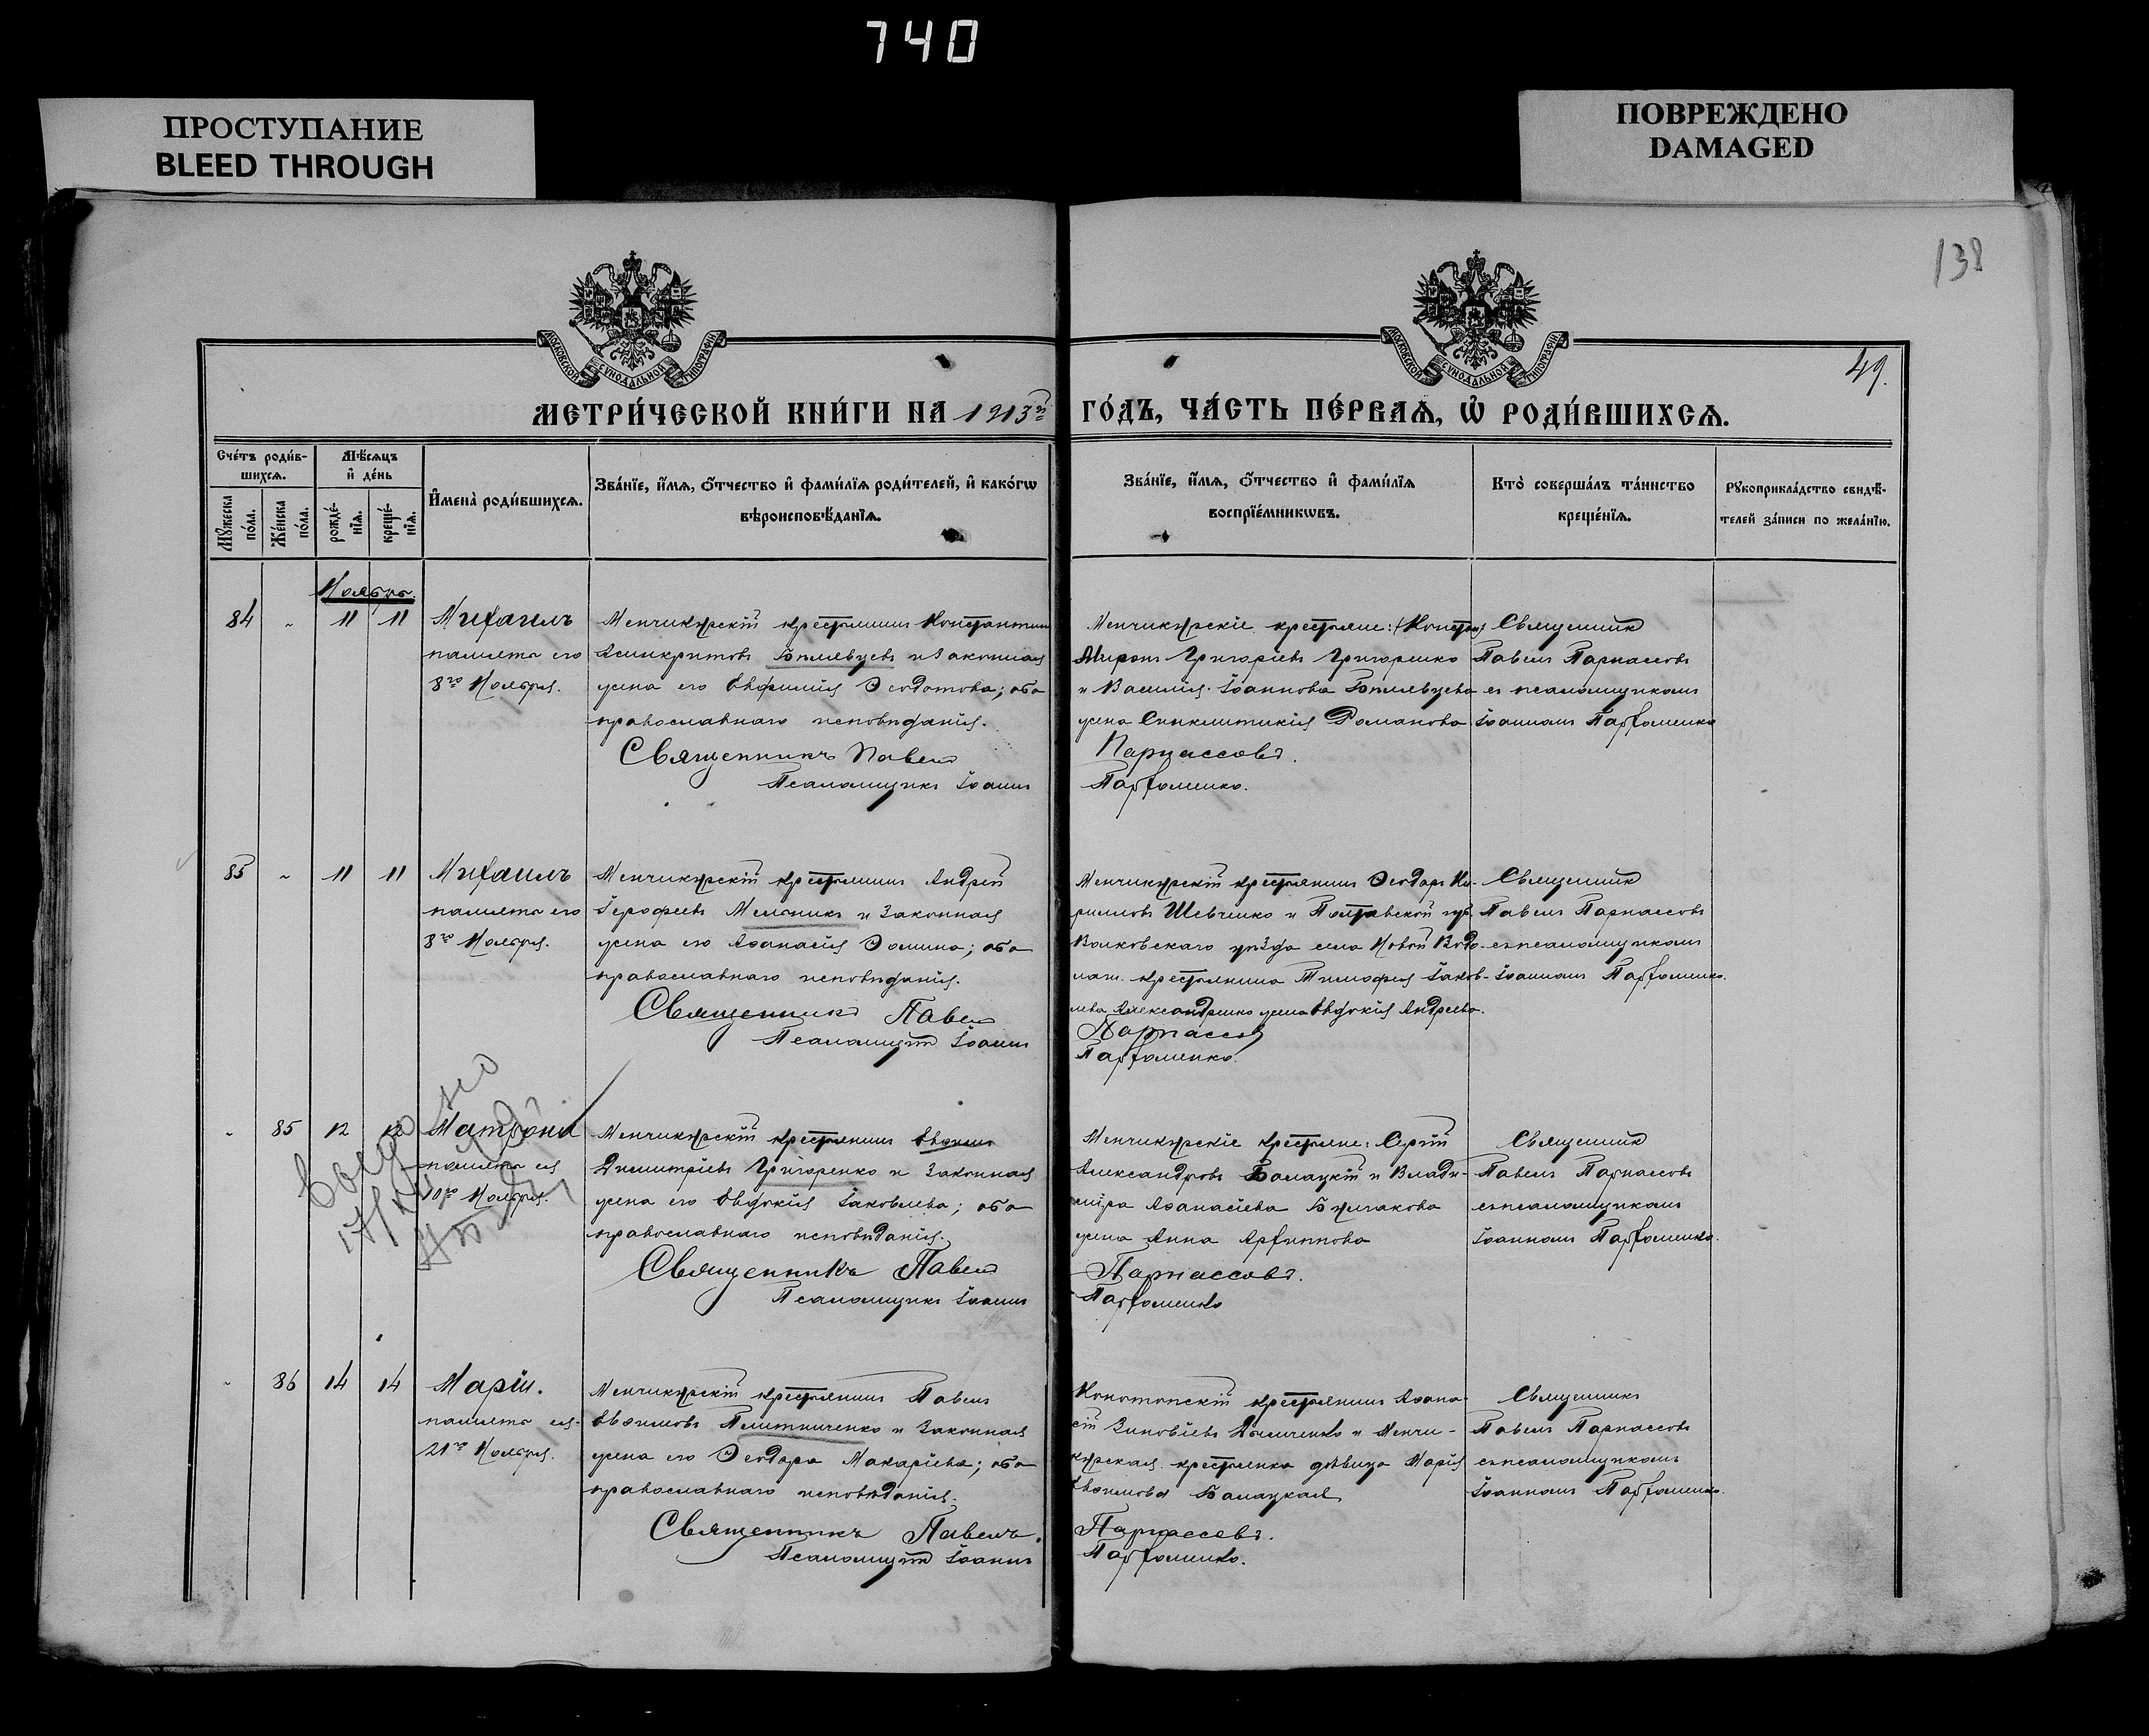 740
ПРОСТУПАНИЕ
BLEED THROUGH
ПОВРЕЖДЕНО
DAMAGED
138
МОСКОВСКОЙ СѴНОДАЛЬНОЙ ТИПОГРАФІИ
МОСКОВСКОЙ СѴНОДАЛЬНОЙ ТИПОГРАФІИ
49.
МЕТРИ́ЧЕСКОЙ КНИ́ГИ НА 1913й
ГО́ДЪ, ЧА́СТЬ ПЕ́РВАѦ, Ѡ҆ РОДИ́ВШИХСѦ.
Сче́тъ роди́в-
шихсѧ.
Мѣ́сѧцъ
и҆ де́нь
Мꙋ́жеска
по́ла.
Же́нска
по́ла.
рожде́-
нїѧ.
креще́-
нїѧ.
И҆мена̀ роди́вшихсѧ.
Зва́нїе, и҆́мѧ, ѻ҆́тчество и҆ фами́лїѧ роди́телей, и҆ како́гѡ
вѣроисповѣ́данїѧ.
Зва́нїе, и҆́мѧ, ѻ҆́тчество и҆ фами́лїѧ
воспрїе́мникѡвъ.
Кто̀ соверша́лъ та́инство
креще́нїѧ.
Рꙋкоприкла́дство свидѣ́-
телей за́писи по жела́нїю.
Ноябрь.
84 - 11 11 Михаилъ
память его
8го Ноября.
Менчикурскій крестьянинъ Константинъ
Асинкритовъ и законная
жена его Евфимія Ѳеодотова; оба
православнаго исповѣданія.
Священникъ Павелъ
Псаломщикъ Іоаннъ
Менчикурскіе крестьяне:
Миронъ Григоріевъ Григоренко
и Василія Іоаннова
жена Синклитикія Романова
Парнассовъ.
Парфоменко.
Священникъ
Павелъ Парнассовъ
съ псаломщикомъ
Іоанномъ Парфоменко
85 - 11 11 Михаилъ
память его
8го Ноября.
Менчикурскій крестьянинъ Андрей
Іерофеевъ Мельникъ и законная
жена его Аѳанасія Ѳомина; оба
православнаго исповѣданія.
Священникъ Павелъ
Псаломщикъ Іоаннъ
Менчикурскій крестьянинъ Ѳеодоръ Ки-
рилловъ Шевченко и Полтавской губ.
Валковскаго уѣзда села Новой Водо-
лаги крестьянина Тимофея Іаков-
лева Александренко жена Евдокія Андреева.
Парнассовъ
Парфоменко.
Священникъ
Павелъ Парнассовъ
съ псаломщикомъ
Іоанномъ Парфоменко.
- 85 12 12 Матрона
память ея
10го Ноября.
Менчикурскій крестьянинъ Евѳимъ
Димитріевъ Григоренко и законная
жена его Евдокія Іаковлева; оба
православнаго исповѣданія.
Священникъ Павелъ
Псаломщикъ Іоаннъ
Менчикурскіе крестьяне: Сергій
Александровъ Балацкій и Влади-
міра Аѳанасіева
жена Анна Архиппова
Парнассовъ.
Парфоменко
Священникъ
Павелъ Парнассовъ
съ псаломщикомъ
Іоанномъ Парфоменко.
- 86 14 14 Марія.
память ея
21го Ноября.
Менчикурскій крестьянинъ Павелъ
Евѳимовъ и законная
жена его Ѳеодора Макаріева; оба
православнаго исповѣданія.
Священникъ Павелъ.
Псаломщикъ Іоаннъ
Конотопскій крестьянинъ Аѳана-
сій Зиновіевъ и Менчи-
курская крестьянка дѣвица Марія
Евѳимова Балацкая
Парнассовъ.
Парфоменко.
Священникъ
Павелъ Парнассовъ
съ псаломщикомъ
Іоанномъ Парфоменко.